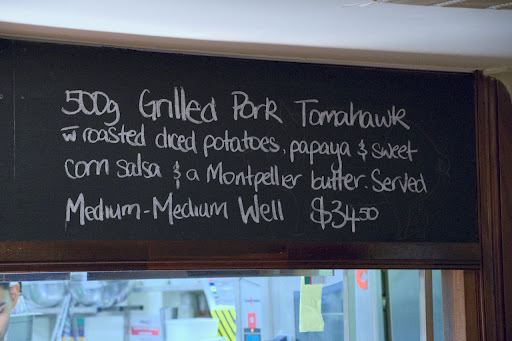 500g Grilled Pork Tomahawk
w̅ roasted diced potatoes, papaya & sweet
corn salsa & a Montpellier butter. Served
Medium-Medium Well $34.50